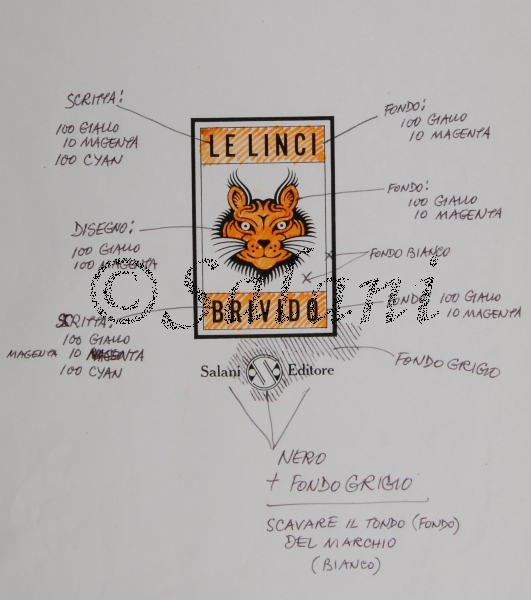 SCRITTA:
100 GIALLO
10 MAGENTA
100 CYAN
FONDO:
100 GIALLO
10 MAGENTA
LE LINCI
FONDO:
100 GIALLO
10 MAGENTA
DISEGNO:
100 GIALLO
100 MAGENTA
FONDO BIANCO
©Salani
BRIVIDO
FONDO: 100 GIALLO
10 MAGENTA
SCRITTA:
100 GIALLO
MAGENTA 10 MAGENTA
100 CYAN
FONDO GRIGIO
Salani Editore
NERO
+ FONDO GRIGIO
SCAVARE IL TONDO (FONDO)
DEL MARCHIO
(BIANCO)